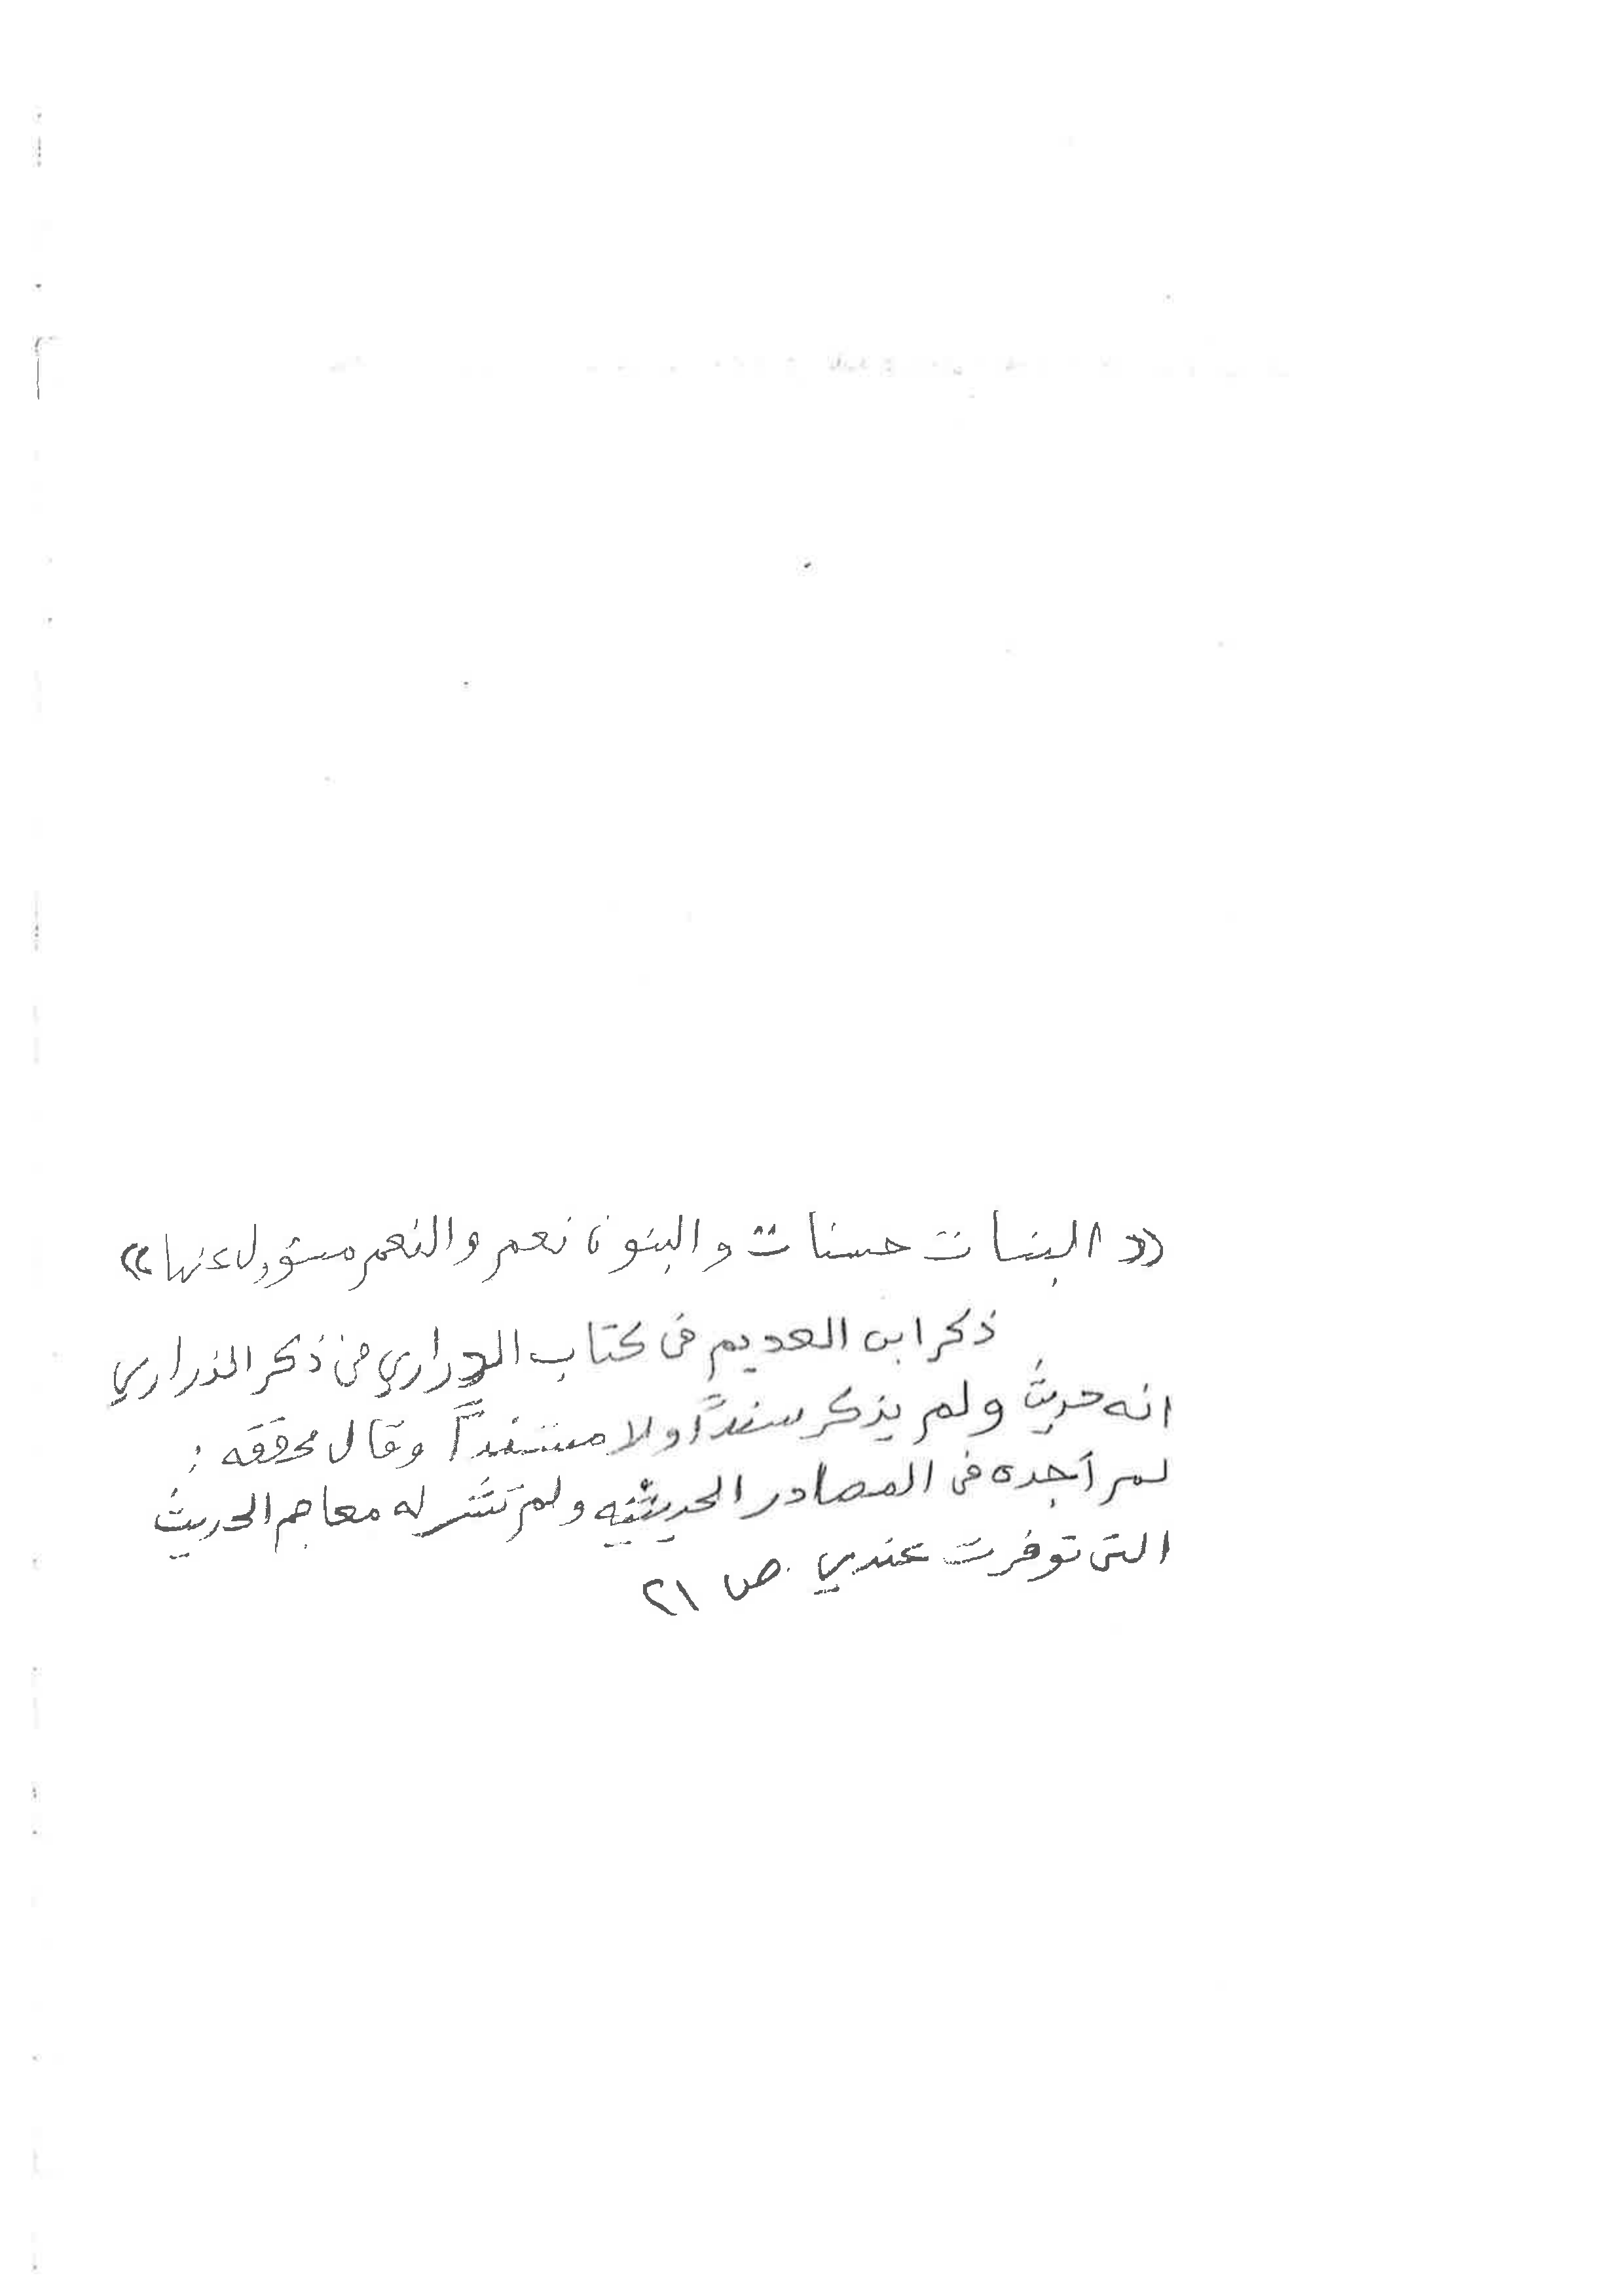 «البنات حسنات والبنون نعم والنعم مسؤول عنها»
ذكر ابن العديم في كتاب الدراري في ذكر الذراري
انه حديث ولم يذكر سنداً ولا مستنداً وقال محققه :
لم أجده في المصادر الحديثيه ولم تشر له معاجم الحديث
التي توفرت عندي . ص ٢١